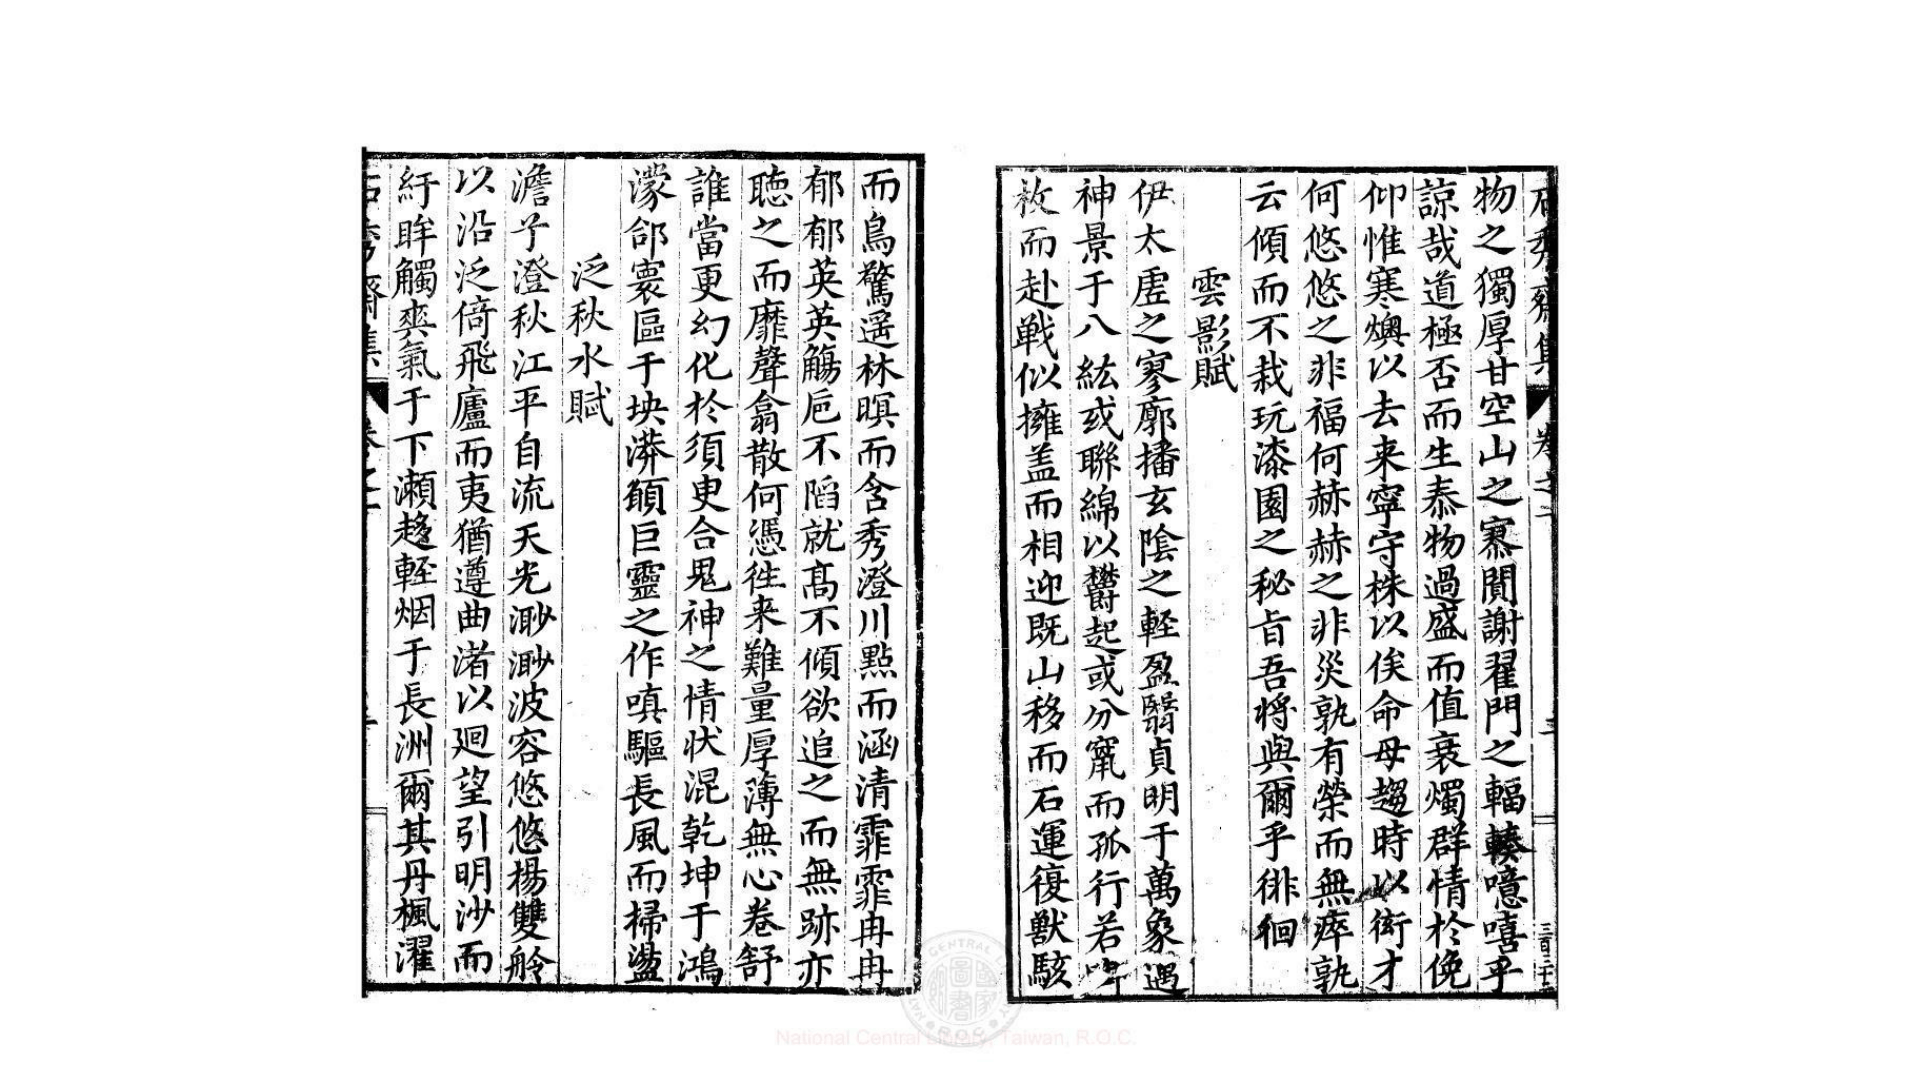 石秀齋集 卷之十
物之獨厚甘空山之寡閴謝翟門之輻輳噫嘻乎
諒哉道極否而生泰物過盛而值衰燭群情於俛
仰惟寒燠以去来寧守株以俟命毋趨時以衒才
何悠悠之非福何赫赫之非災孰有榮而無瘁孰
云傾而不栽玩漆園之秘旨吾将與爾乎徘徊
雲影賦
伊太虛之寥廓播玄陰之輕盈翳貞明于萬象遇
神景于八紘或聯綿以欝起或分竄而孤行若啣
枚而赴戰似擁盖而相迎既山移而石運復獸駭
而鳥驚遥林暝而含秀澄川點而涵清霏霏冉冉
郁郁英英觴巵不謟就髙不傾欲追之而無跡亦
聴之而靡聲翕散何憑徃来難量厚薄無心卷舒
誰當更幻化於須臾合鬼神之情状混乾坤于鴻
濛郃寰區于坱漭頠巨靈之作嗔驅長風而掃盪
泛秋水賦
澹予澄秋江平自流天光渺渺波容悠悠楊雙舲
以沿泛倚飛廬而夷猶遵曲渚以廻望引明沙而
紆眸觸爽氣于下瀬趍輕烟于長洲爾其丹楓濯
石秀齋集 卷之十
National Central Library, Taiwan, R.O.C.